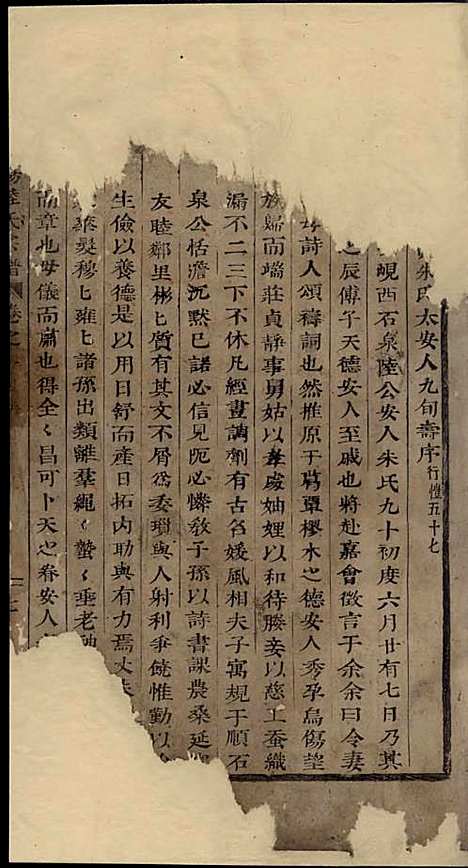 朱氏太安人九旬壽序行愷五十七
峴西石泉陸公安人朱氏九十初度六月廿有七日乃其
之辰傅子天德安人至戚也將赴嘉會徵言于余余曰令妻
母詩人頌禱詞也然推原于葛覃樛木之德安人秀孕烏傷望
族歸而端莊貞靜事舅姑以孝處妯娌以和待勝妾以慈工蚕織
漏不二三下不休凡經畫調劑有古名媛風相夫子寓規于順石
泉公恬澹沉默已諾必信見阨必憐教子孫以詩書課農桑延
友睦鄰里彬匕質有其文不屑為委瑣與人射利爭饒惟勤以
生儉以養德是以用日舒而產日拓內助與有力焉丈
髮穆匕雍匕諸孫出類離羣繩〻蟄〻垂老
而章也母儀而肅也得全〻昌可卜天之眷安人
陸氏宗譜 卷之